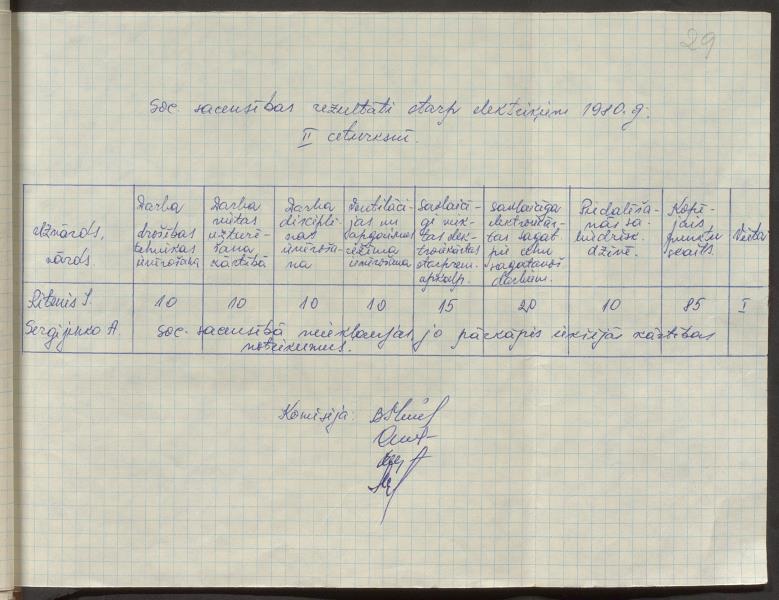 29
Soc. sacensības rezultāti starp elektriķiem 1980. g.
II ceturksnī.
Uzvārds, vārds.
Darba drošības tehnikas ievērošana
Darba vietas uzturēšana kārtībā
Darba disciplīnas ievērošana
Ventilācijas un apgaismes režīma ievērošana
Savlaicīgi veiktas elektroiekārtas starprem. apkalp.
Savlaicīga elektroiekārtas sagat. pie cehu sagatavoš. darbiem.
Piedalīšanās sabiedrisk. dzīvē.
Kopējais punktu skaits.
Vieta
Litenis J. 10 10 10 10 15 20 10 85 I
Sergijenko A. Soc. sacensībā neiekļaujas, jo pārkāpis iekšējās kārtības
noteikumus.
Komisija: